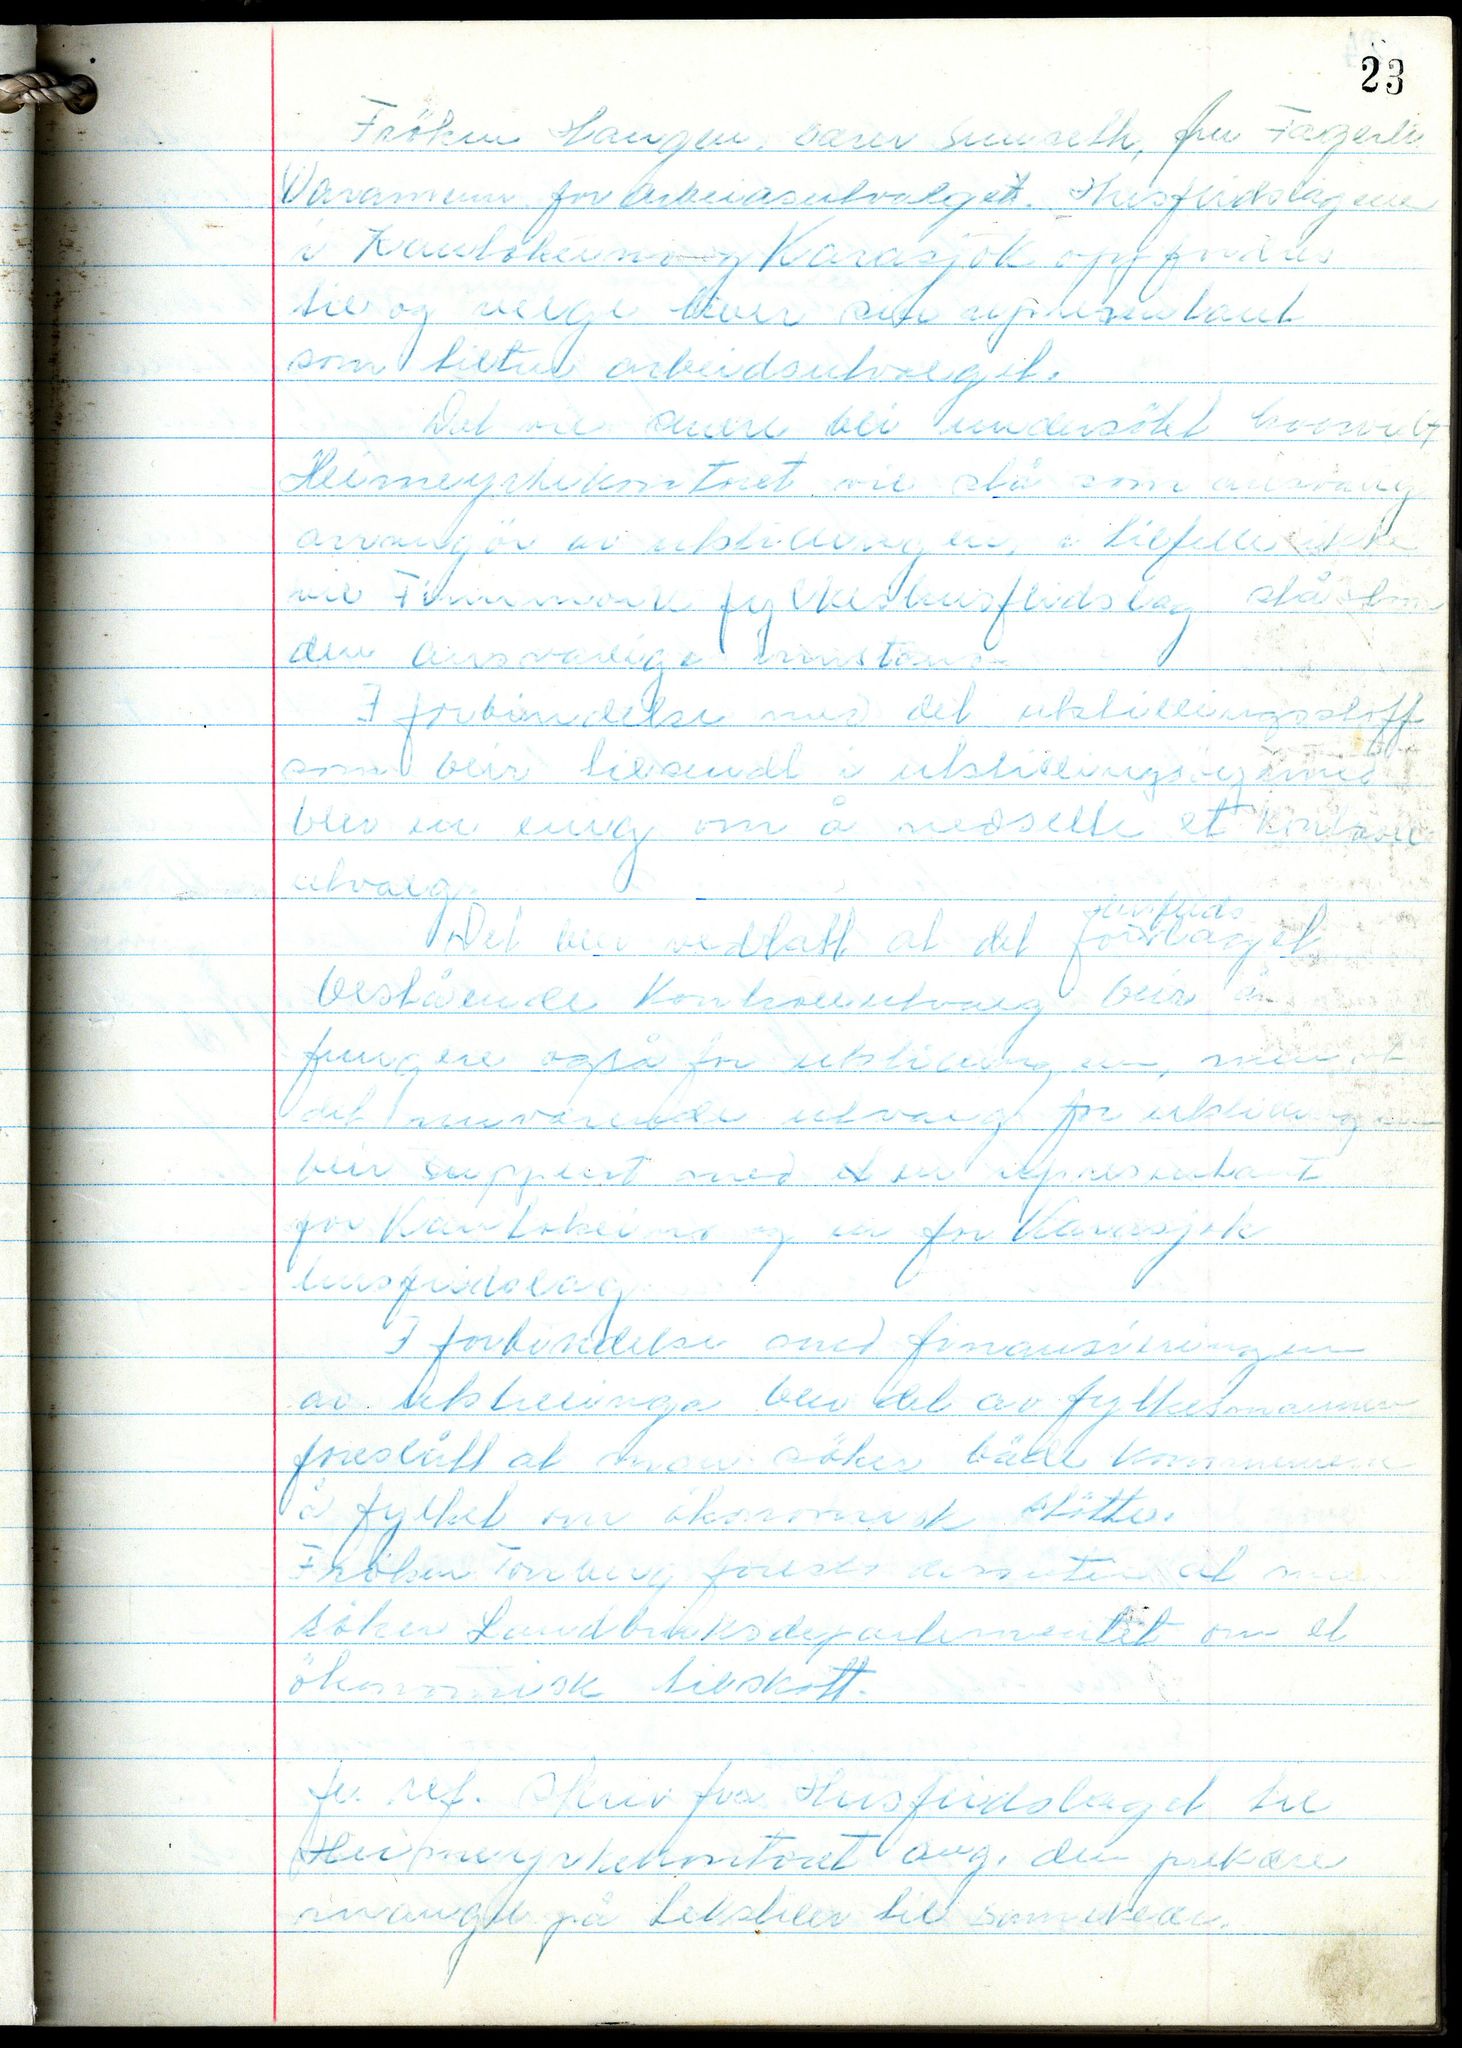 23
Fröken Haugen, lærer Sunseth, fru Fagerli
Varamenn for arbeidsutvalget. Husflidslagene
i Kautokeino og Karasjok oppfordres
til og velge hver sin representant
som tiltrer arbeidsutvalget.
Det vil senere bli undersökt hvorvidt
Heimeyrkekontoret vil stå som ansvarlig
arrangör av utstillingen, i tilfelle ikke
vil Finnmark fylkeshusflidslag stå som
den ansvarlige instans.
I forbindelse med det utstillingsstoff
som blir tilsendt i utstillingsöyemed
blev en enig om å nedsette et kontroll
utvalg.
husflids
Det blev vedtatt at det for laget
bestående kontrollutvalg blir å
fungere også for utstillingen, men at
det nuværende utvalg for utstillingen
blir supplert med en representant
for Kautokeino og en for Karasjok
husflidslag.
I forbindelse med finansieringen
av utstillinga blev det av fylkesmannen
foreslått at man söker både kommunene
i fylket om ökonomisk stötte.
Fröken Tonberg foreslo dessuten at man
söker Landbruksdepartementet om et
ökonomisk tilskott.
ref. skriv fra Husflidslaget til
Heimeyrkekontoret ang. den prekære
mangel på tekstiler til samene.